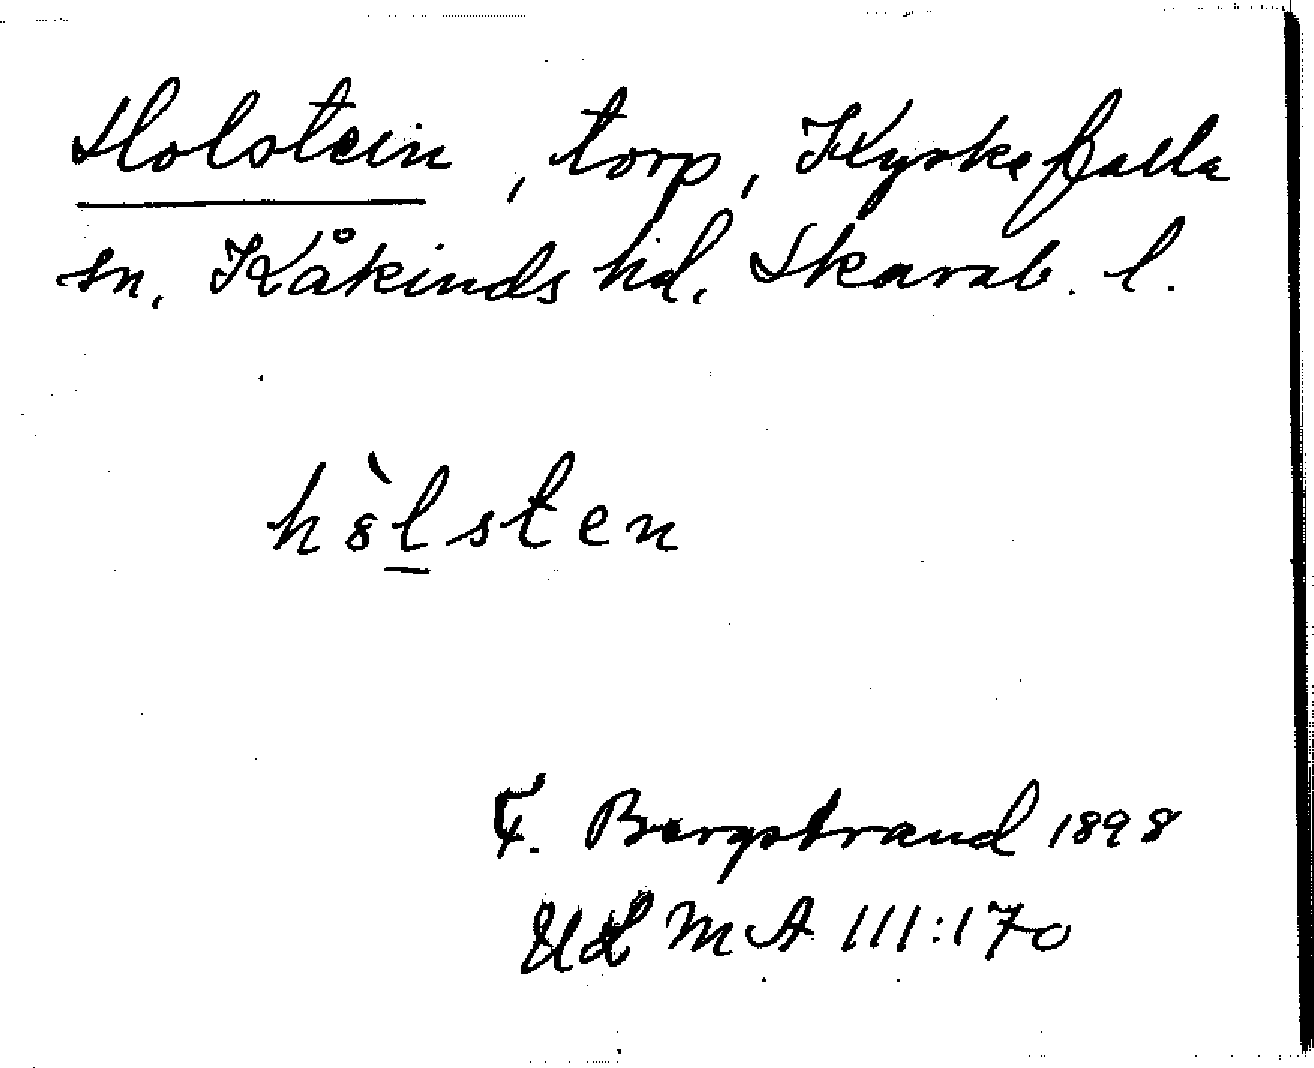 Holstein, torp, Kyrkefalla
sn. Kåkinds hd. Skarab. l.
hòlsten
F. Bergstrand 1898
ULMA 111:170